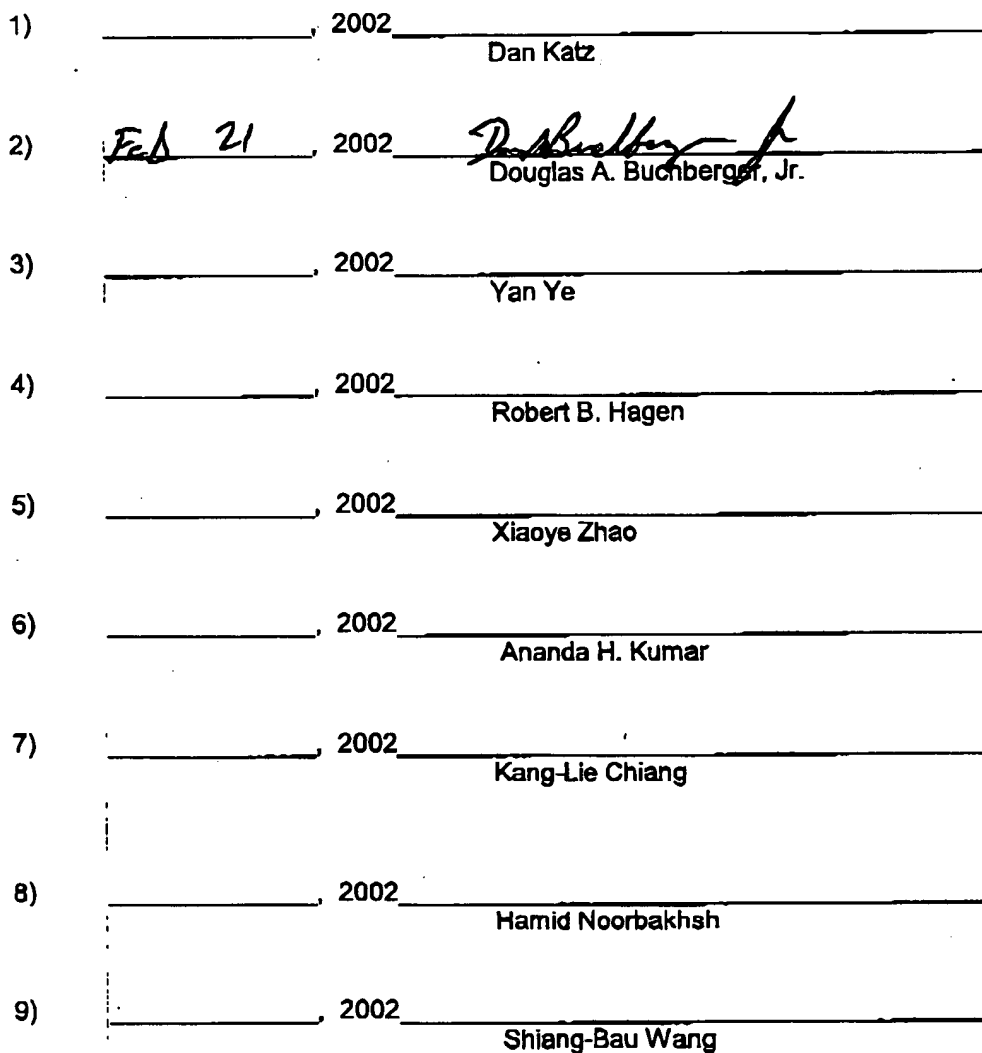 1) , 2002
Dan Katz
2) Feb 21 , 2002
Douglas A. Buchberger, Jr.
3) , 2002
Yan Ye
4) , 2002
Robert B. Hagen
5) , 2002
Xiaoye Zhao
6) , 2002
Ananda H. Kumar
7) , 2002
Kang-Lie Chiang
8) , 2002
Hamid Noorbakhsh
9) , 2002
Shiang-Bau Wang